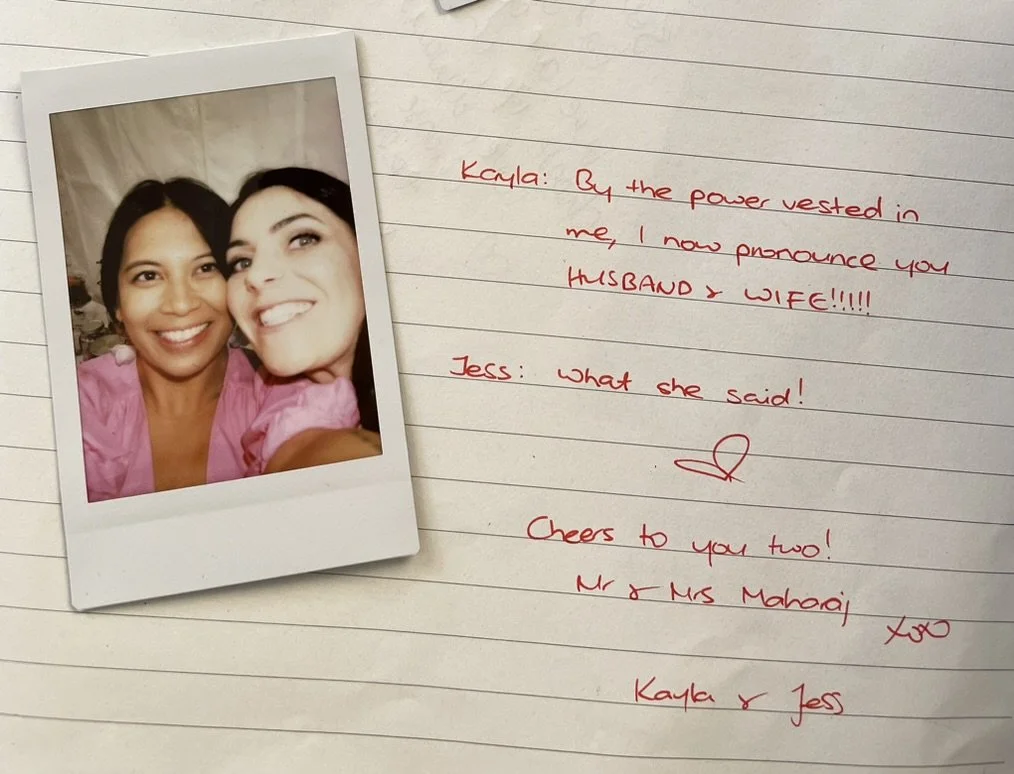 Kayla: By the power vested in
me, I now pronounce you
HUSBAND & WIFE!!!!!
Jess: what she said!
Cheers to you two!
Mr & Mrs Maharaj
xoxo
Kayla & Jess